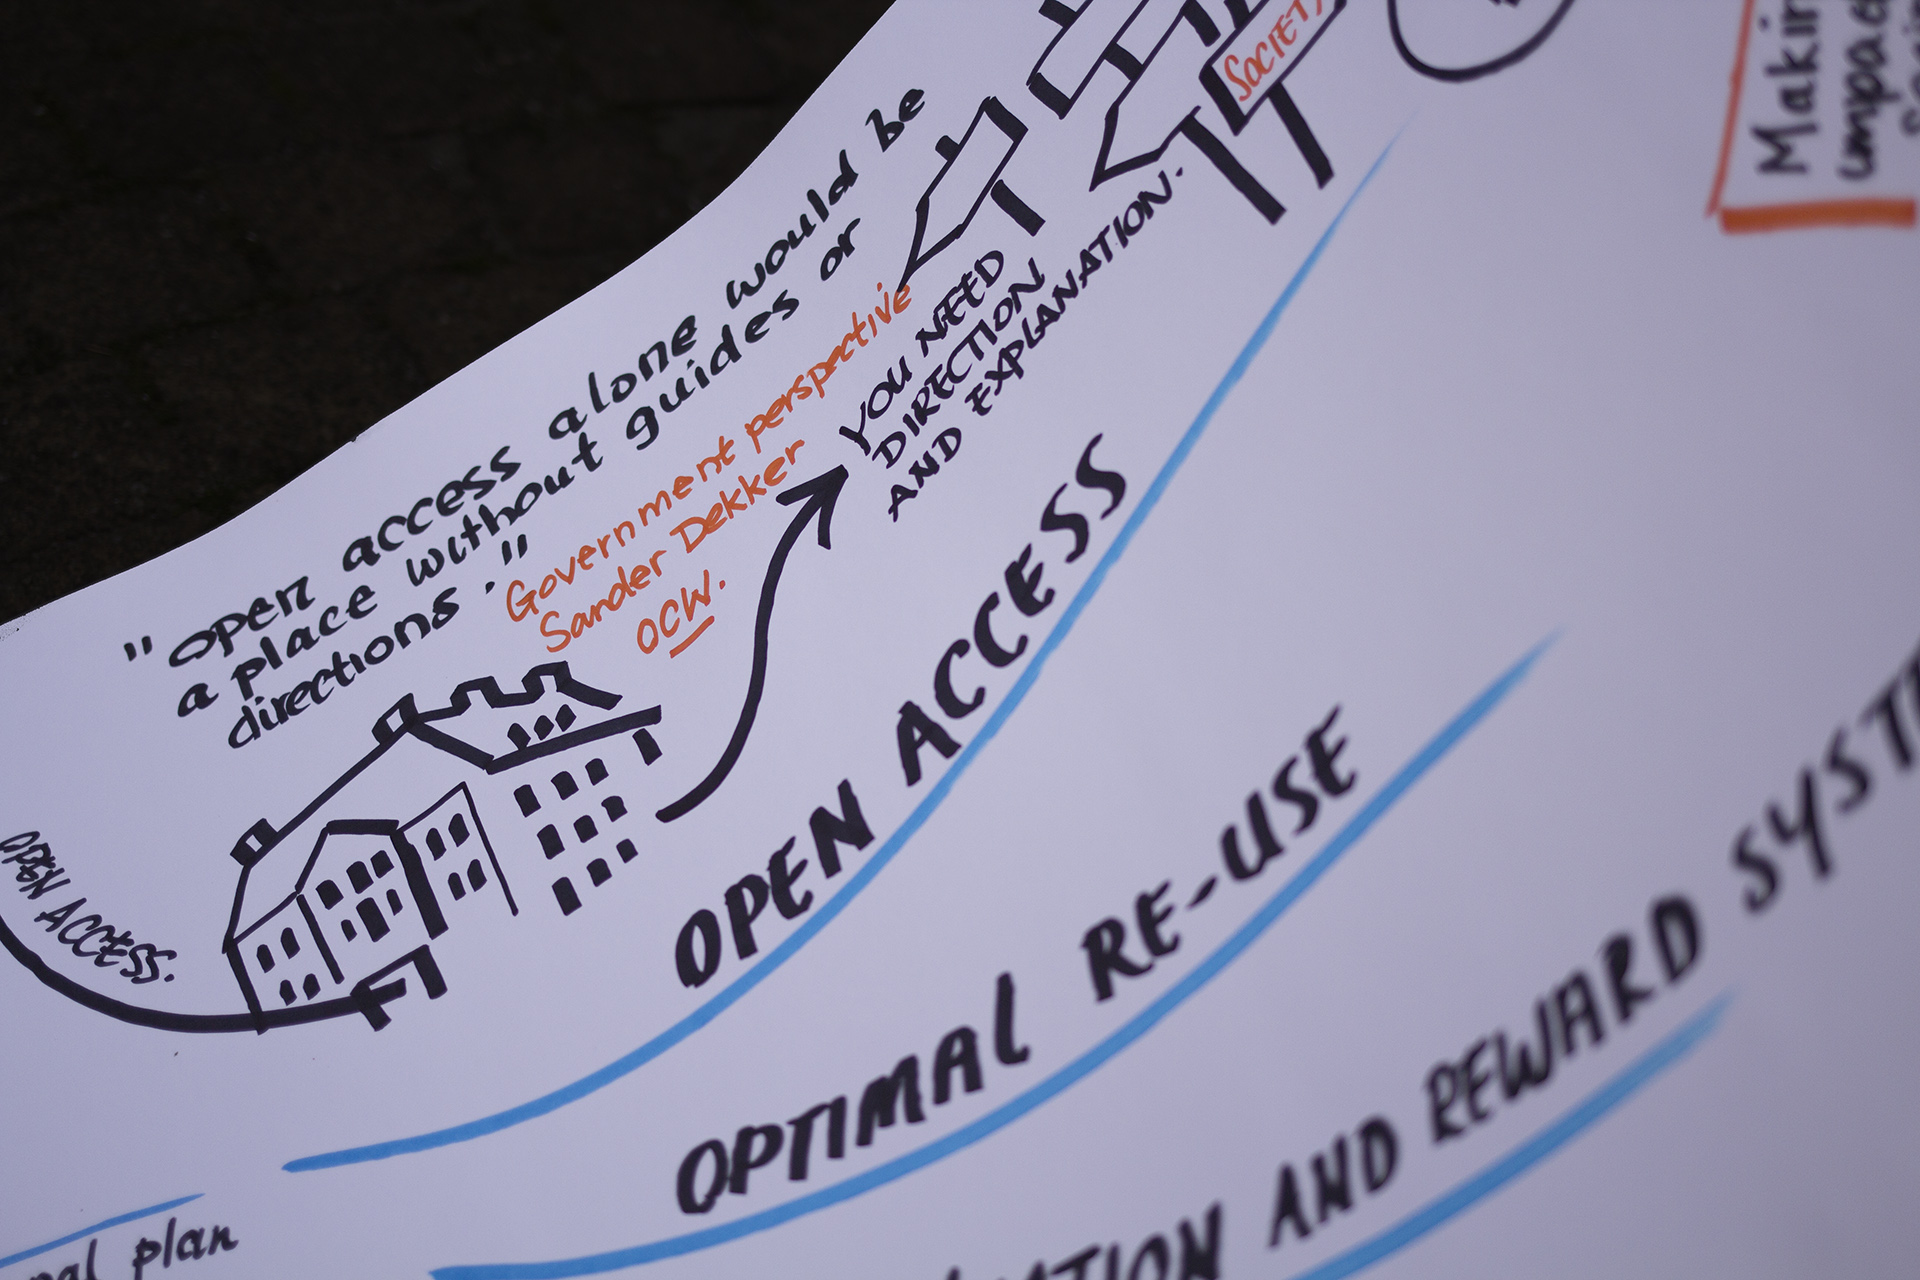 "open access alone would be
a place without guides or
directions."
Government perspective
Sander Dekker
OCW.
YOU NEED
DIRECTION
AND EXPLANATION.
SOCIETY
Making
OPEN ACCESS.
OPEN ACCESS
OPTIMAL RE-USE
AND REWARD
plan